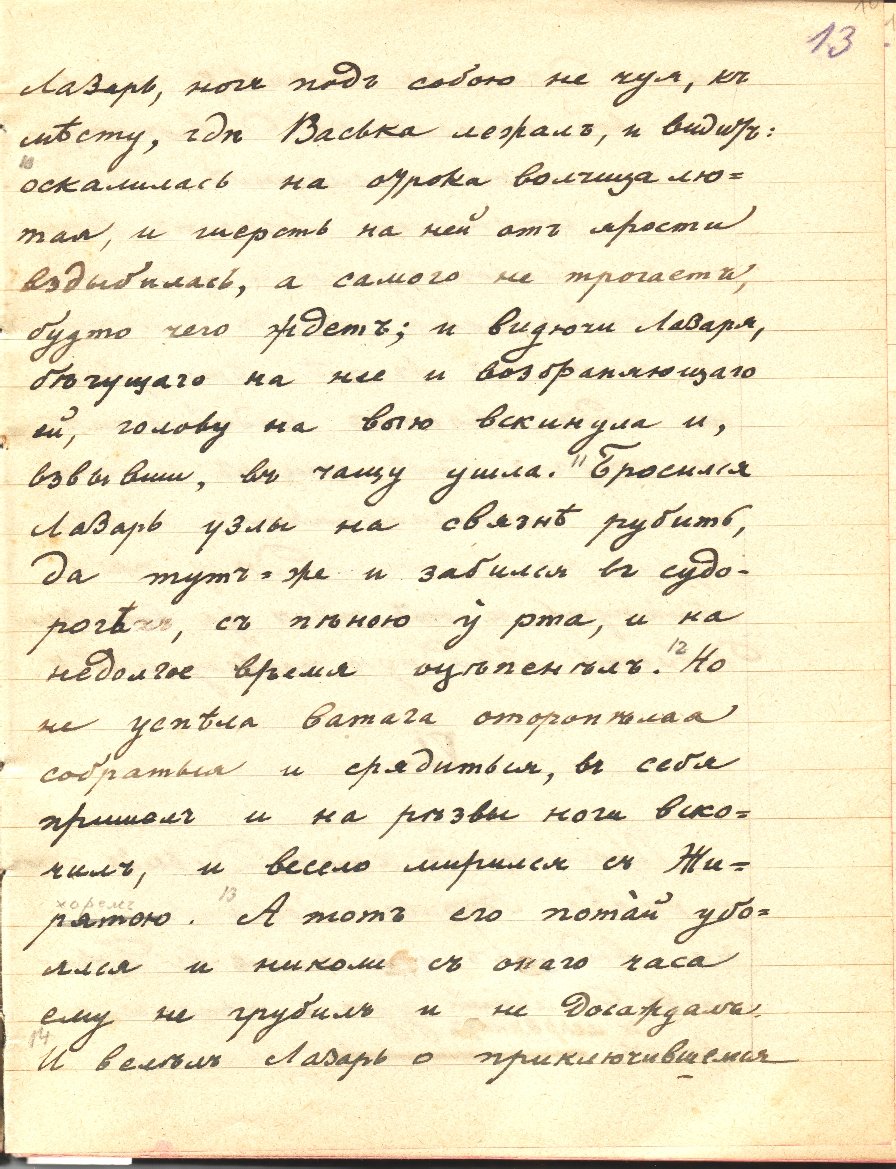 13
Лазарь, ногъ подъ собою не чуя, къ
мѣсту, гдѣ Васька лежалъ, и видитъ:
10
оскалилась на отрока волчица лю=
тая, и шерсть на ней отъ ярости
вздыбилась, а самого не трогаетъ,
будто чего ждетъ; и видючи Лазаря,
бѣгущаго на нее и возбраняющаго
ей, голову на выю вскинула и,
взвывши, въ чащу ушла. 11 Бросился
Лазарь узлы на связнѣ рубить,
да тутъ=же и забился въ судо-
рогѣ, съ пѣною у рта, и на
недолгое время оцѣпенѣлъ. 12 Но
не успѣла ватага оторопѣлая
собраться и срядиться, въ себя
пришелъ и на рѣзвы ноги вско=
чилъ, и весело мирился съ Жи=
хоремъ
рятою. 13 А тотъ его потай убо=
ялся и николи съ онаго часа
ему не грубилъ и не досаждалъ.
14
И велѣлъ Лазарь о приключившемся